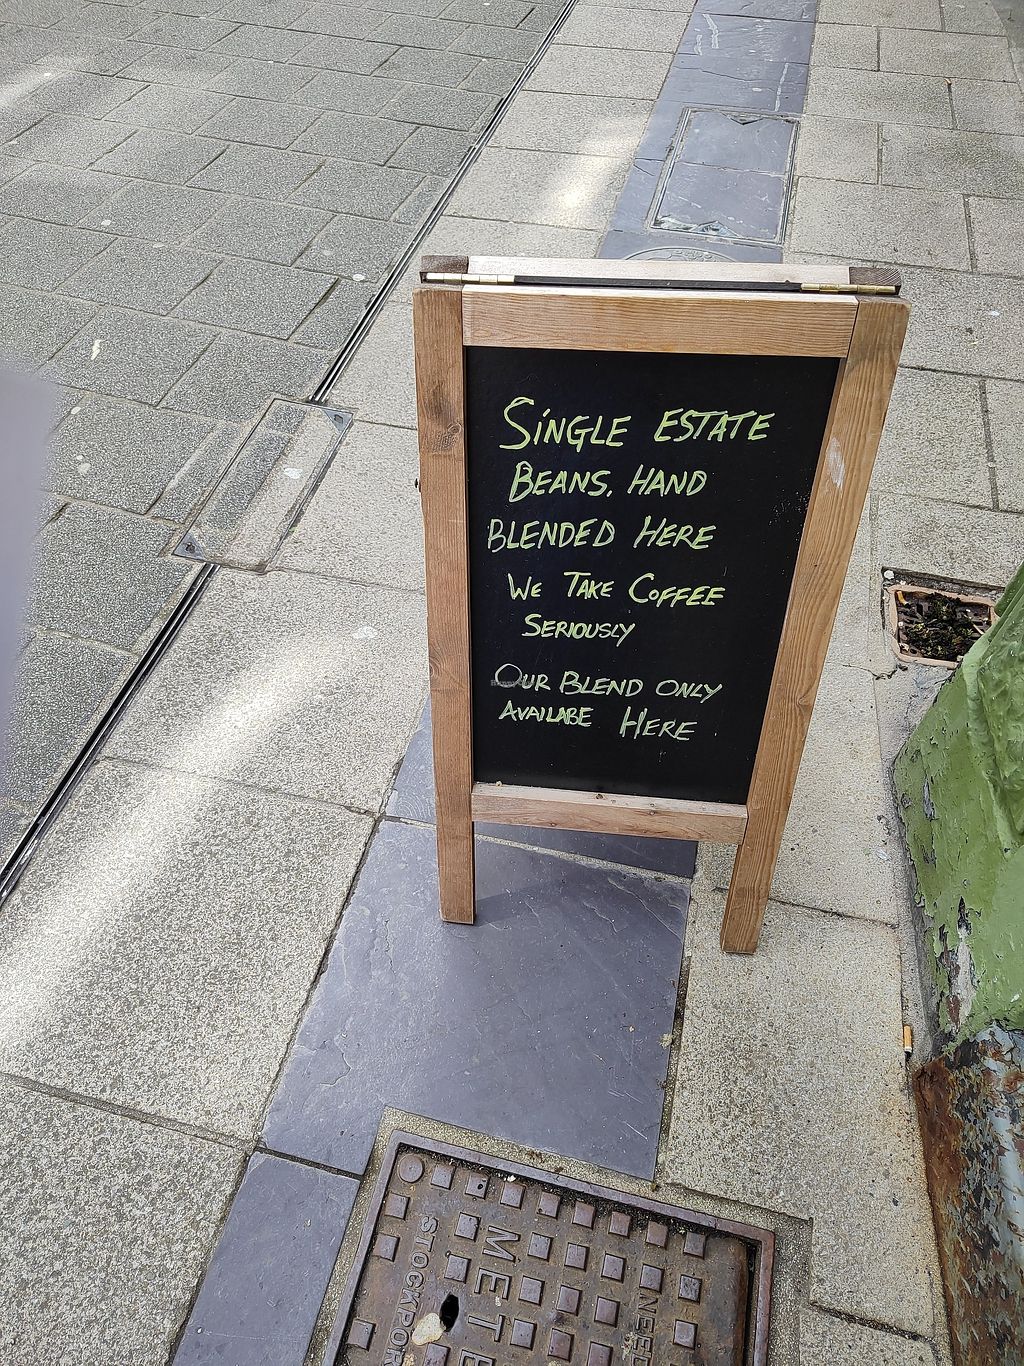 SiNGLE ESTATE
BEANS. HAND
BLENDED HERE
WE TAKE COFFEE
SERIOUSLY
OUR BLEND ONLY
AVAILABE HERE.
STOCKPOR
MET